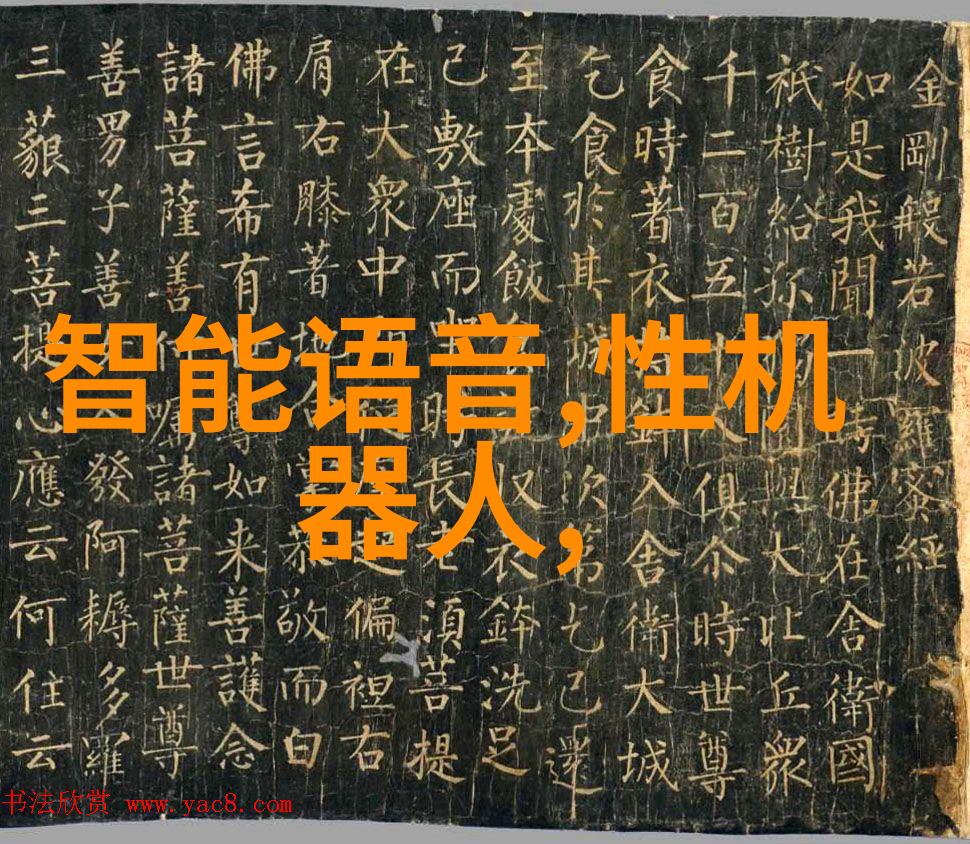 金剛般若波羅蜜經
如是我聞一時佛在舍衛國
祇樹給孤園與大比丘眾
千二百五十人俱尒時世尊
食時著衣入舍衛大城
乞食於其城中次第乞已還
至本處飯収衣鉢洗足
已敷座而坐時長老須菩提
在大眾中起偏袒右
肩右膝著地合掌恭敬而白
佛言希有世尊如来善護念
諸菩薩善付嘱諸菩薩世尊
善男子善發阿耨多羅
三藐三菩提心應云何住云
智能语音,性机
器人,
书法欣赏 www.yac8.com